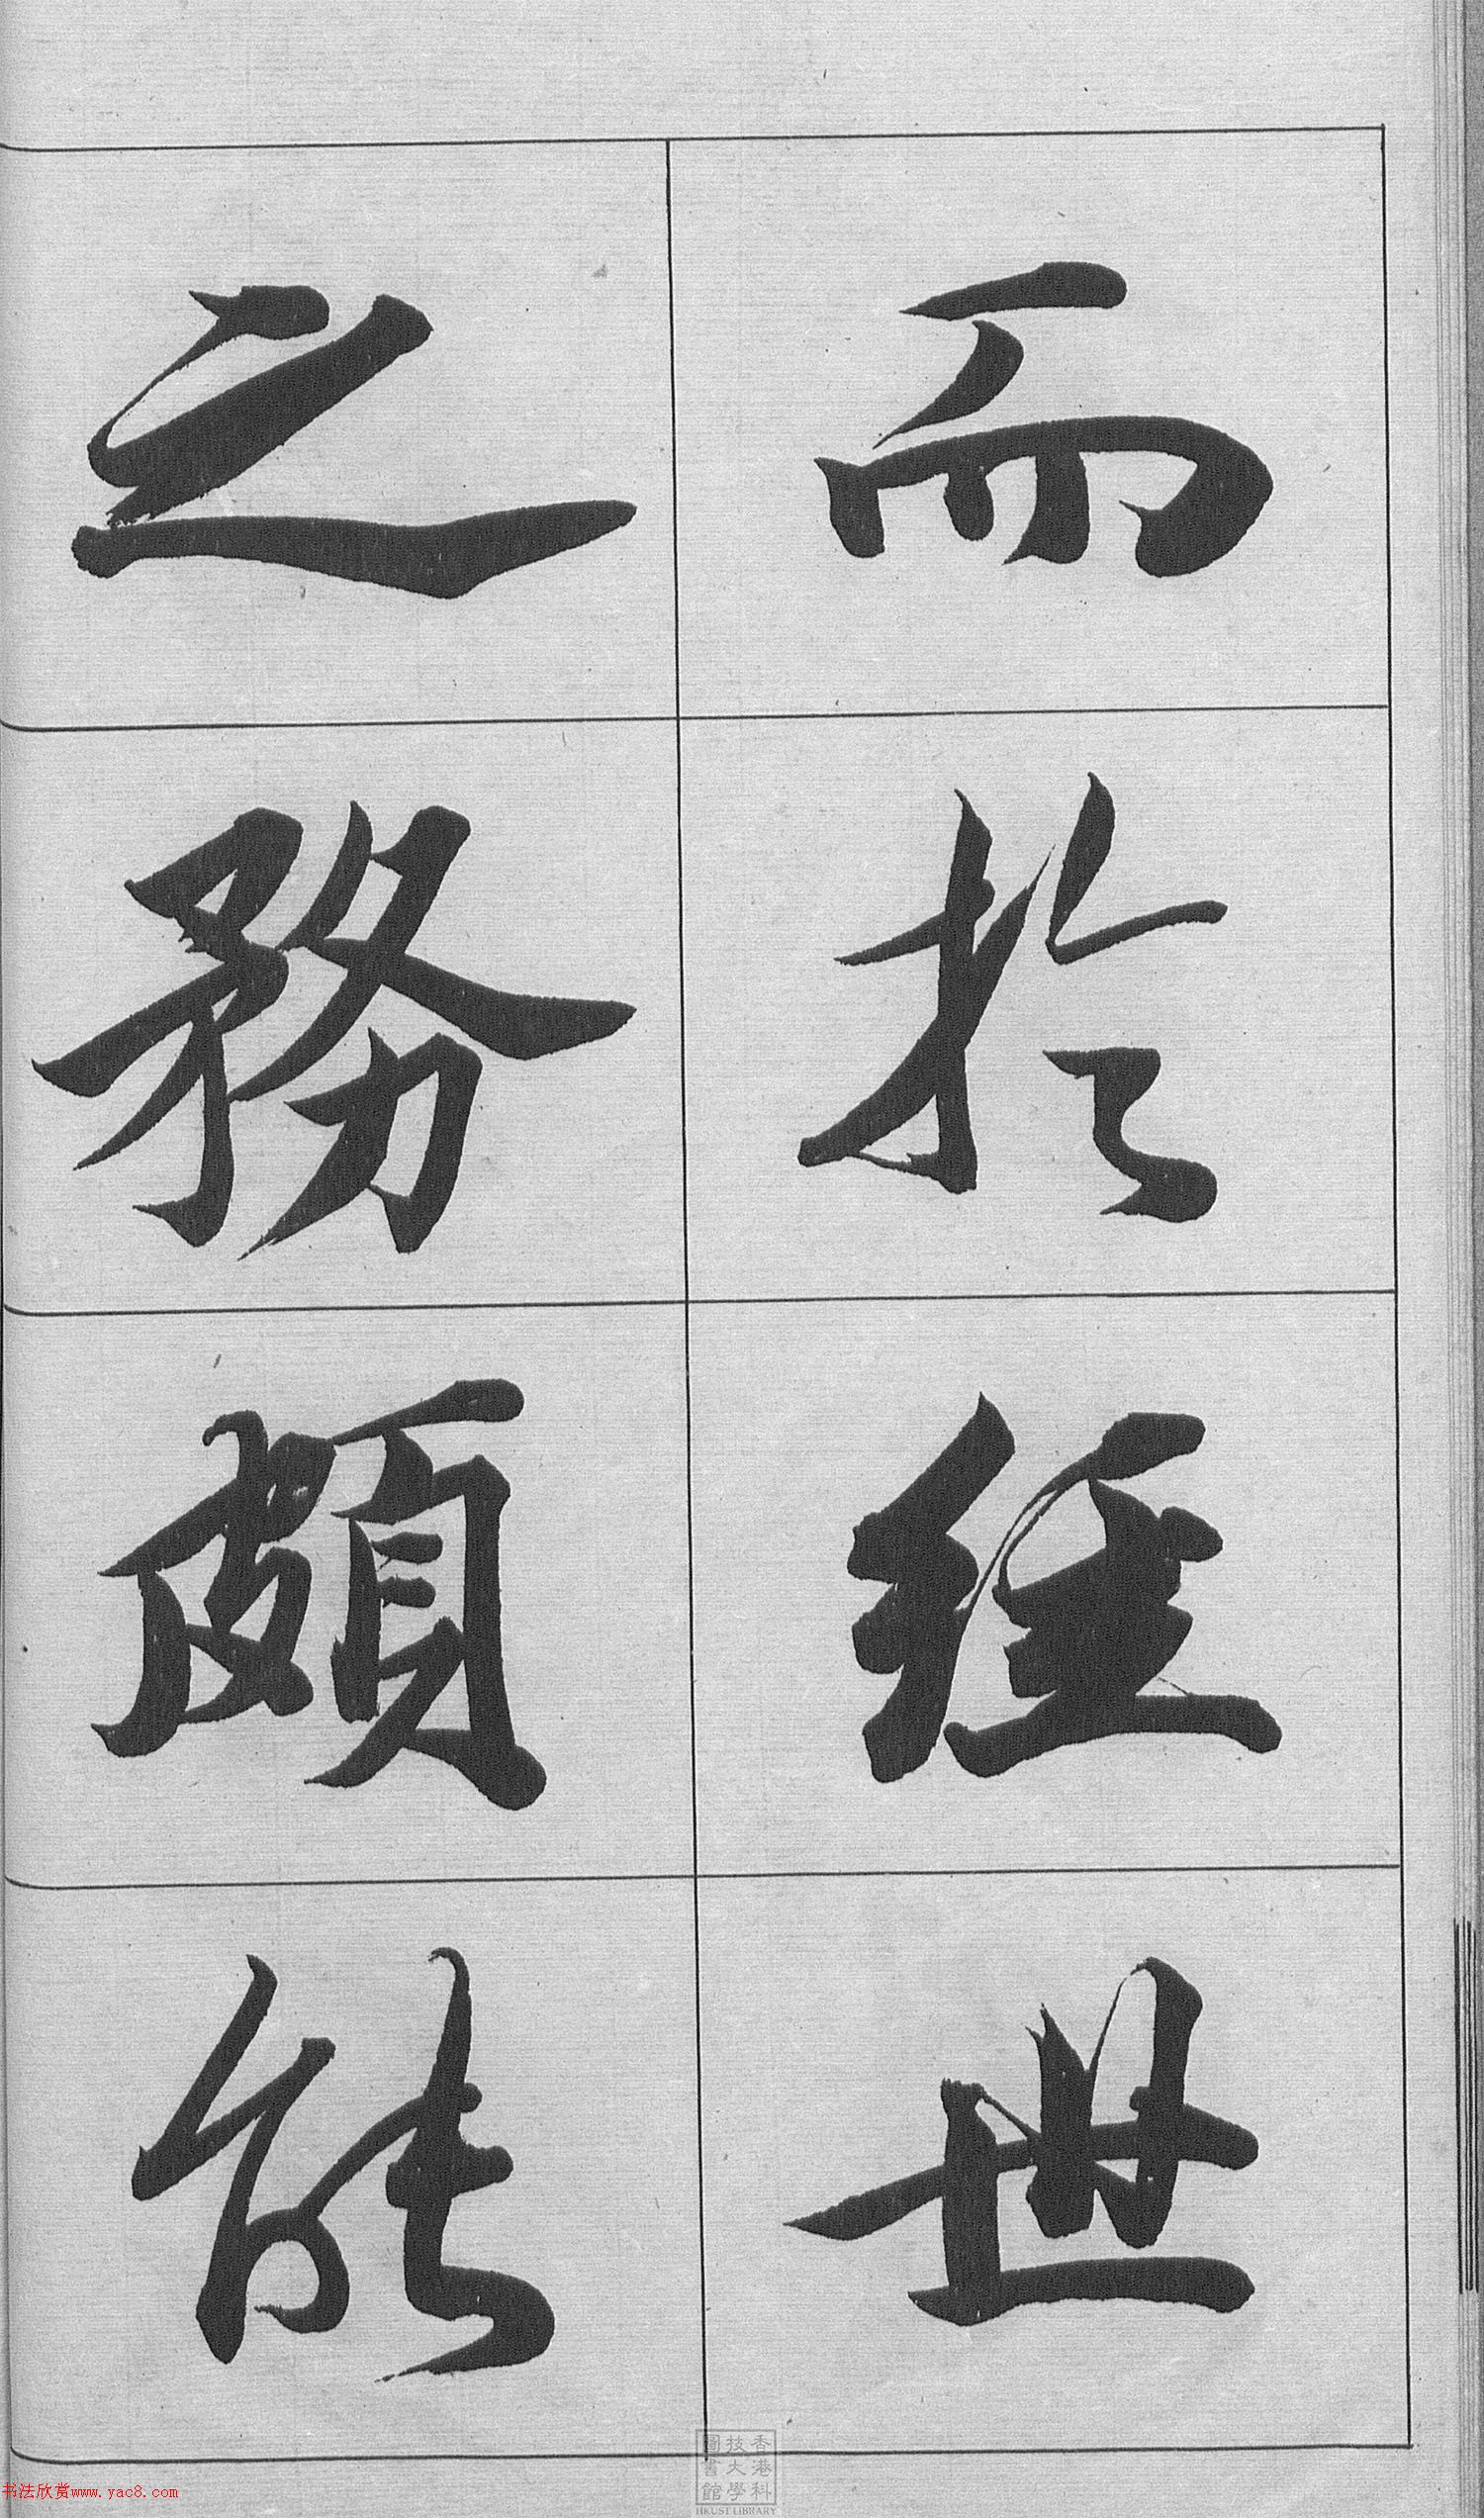 而於經世
之務頗能
香港科
技大學
圖書館
HKUST LIBRARY
书法欣赏www.yac8.com